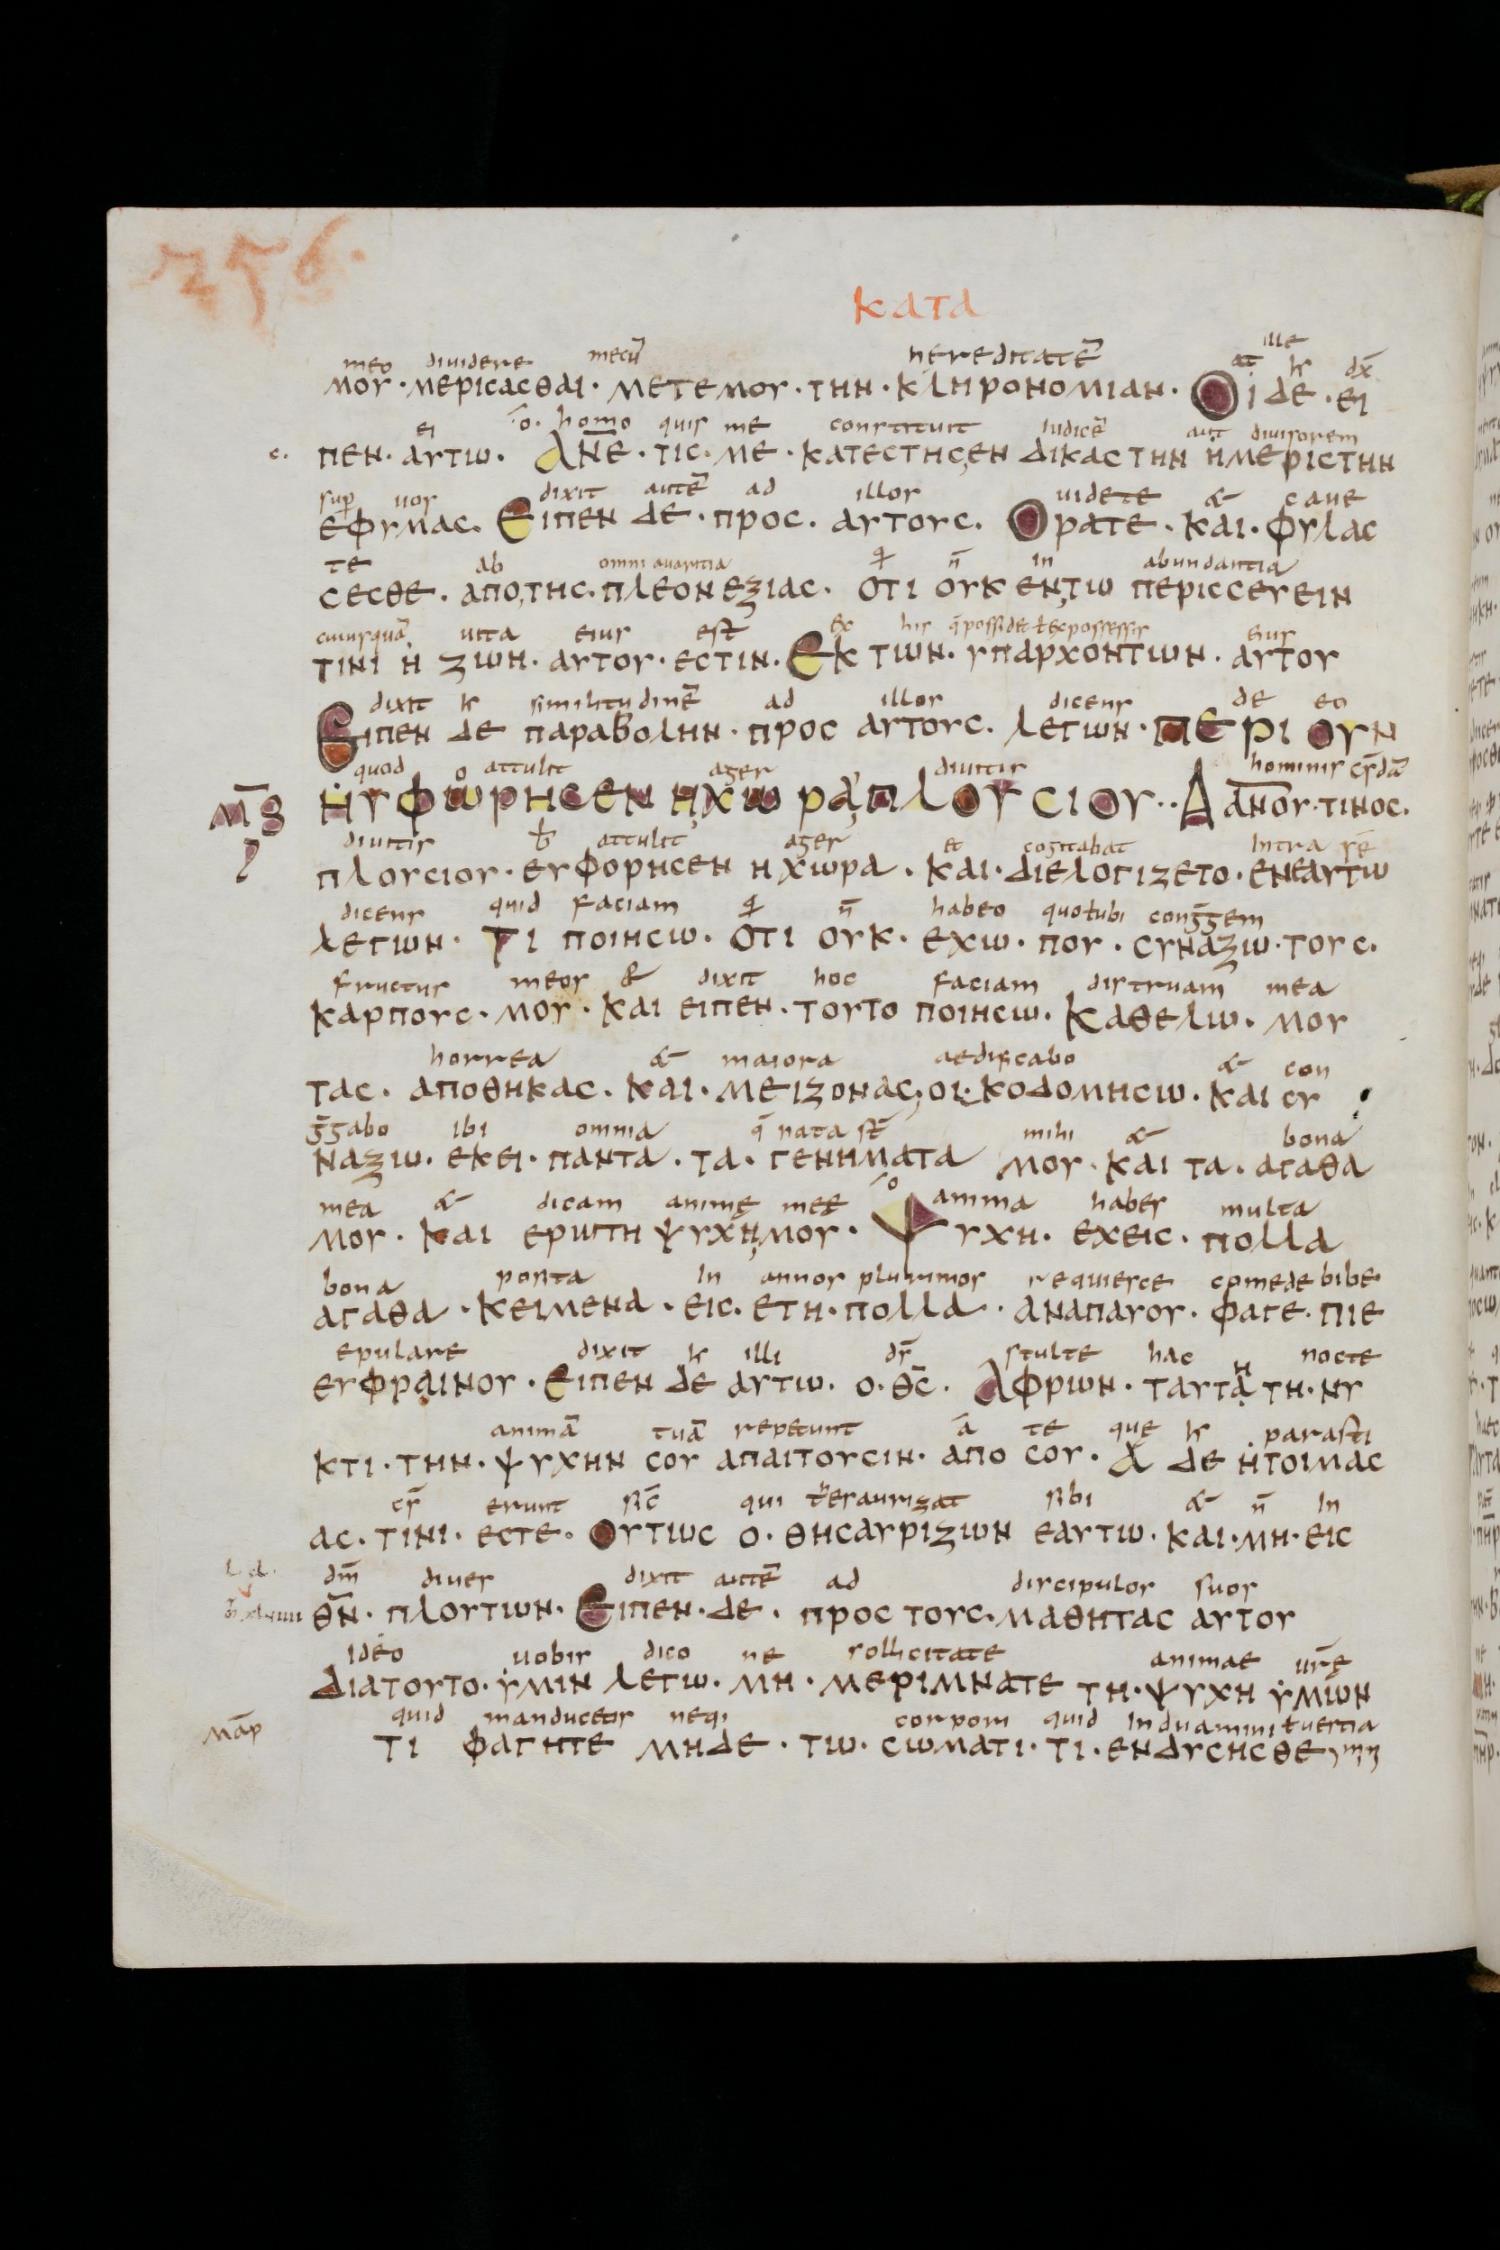 256.
ΚΑΤΑ
meo diuidere mecū hereditatē at ille ħ dx̄
ΜΟΥ · ΜΕΡΙCΑCΘΑΙ · ΜΕΤΕΜΟΥ · ΤΗΝ · ΚΛΗΡΟΝΟΜΙΑΝ · ΟΙ ΔΕ · ΕΙ
ei o homo quis me constituit iudicē aut diuisorem
c. ΠΕΝ · ΑΥΤΩ · ΑΝ̅Ε · ΤΙC · ΜΕ · ΚΑΤΕCΤΗCΕΝ ΔΙΚΑCΤΗΝ ΗΜΕΡΙCΤΗΝ
sup uos dixit autē ad illos uidete & caue
ΕΦΥΜΑC · ΕΙΠΕΝ ΔΕ · ΠΡΟC · ΑΥΤΟΥC · ΟΡΑΤΕ · ΚΑΙ · ΦΥΛΑC
te ab omni auaritia n̄ in abundantia
CΕCΘΕ · ΑΠΟ,ΤΗC · ΠΛΕΟΝΕΞΙΑC · ΟΤΙ ΟΥΚ ΕΝ,ΤΩ ΠΕΡΙCCΕΥΕΙΝ
cuiusquā uita eius est ex his q̄ possidet ł ex possessis eius
ΤΙΝΙ Η ΖΩΗ · ΑΥΤΟΥ · ΕCΤΙΝ · ΕΚ ΤΩΝ · ΥΠΑΡΧΟΝΤΩΝ · ΑΥΤΟΥ
dixit ħ similitudinē ad illos dicens de eo
ΕΙΠΕΝ ΔΕ ΠΑΡΑΒΟΛΗΝ · ΠΡΟC ΑΥΤΟΥC · ΛΕΓΩΝ · ΠΕΡΙ ΟΥΝ
quod o attulit ager diuitis hominis cuiꝰdā
ΗΥΦΩΡΗCΕΝ Η,ΧΩΡΑ,ΠΛΟΥCΙΟΥ · · Α ΑΝ̅ΟΥ · ΤΙΝΟC ·
diuitis attulit ager et cogitabat intra se
ΠΛΟΥCΙΟΥ · ΕΥΦΟΡΗCΕΝ Η ΧΩΡΑ · ΚΑΙ · ΔΙΕΛΟΓΙΖΕΤΟ · ΕΝΕΑΥΤΩ
dicens quid faciam n̄ habeo quo ł ubi congḡem
ΛΕΓΩΝ · ΤΙ ΠΟΙΗCΩ · ΟΤΙ ΟΥΚ · ΕΧΩ · ΠΟΥ · CΥΝΑΞΩ · ΤΟΥC ·
fructus meos & dixit hoc faciam distruam mea
ΚΑΡΠΟΥC · ΜΟΥ · ΚΑΙ ΕΙΠΕΝ · ΤΟΥΤΟ ΠΟΙΗCΩ · ΚΑΘΕΛΩ · ΜΟΥ
horrea & maiora aedificabo & con
ΤΑC · ΑΠΟΘΗΚΑC · ΚΑΙ · ΜΕΙΖΟΝΑC,ΟΙ · ΚΟΔΟΜΗCΩ · ΚΑΙ CΥ
gḡabo ibi omnia q̄ nata st̄ mihi & bona
ΝΑΞΩ · ΕΚΕΙ · ΠΑΝΤΑ · ΤΑ · ΓΕΝΗΜΑΤΑ ΜΟΥ · ΚΑΙ ΤΑ · ΑΓΑΘΑ
mea & dicam animę meę o anima habes multa
ΜΟΥ · ΚΑΙ ΕΡΩΤΗ ΨΥΧΗ,ΜΟΥ · ΨΥΧΗ · ΕΧΕΙC · ΠΟΛΛΑ
bona posita in annos plurimos requiesce comede bibe
ΑΓΑΘΑ · ΚΕΙΜΕΝΑ · ΕΙC · ΕΤΗ · ΠΟΛΛΑ · ΑΝΑΠΑΥΟΥ · ΦΑΓΕ · ΠΙΕ
epulare dixit ħ illi ds̄ stulte hac nocte
ΕΥΦΡΑΙΝΟΥ · ΕΙΠΕΝ ΔΕ ΑΥΤΩ · Ο · ΘC̅ · ΑΦΡΩΝ · ΤΑΥΤΑ ΤΗ · ΝΥ
animā tuā repetunt ā te que ħ parasti
ΚΤΙ · ΤΗΝ · ΨΥΧΗΝ CΟΥ ΑΠΑΙΤΟΥCΙΝ · ΑΠΟ CΟΥ · Α ΔΕ ΗΤΟΙΜΑC
erunt sic̄ qui thesaurizat sibi & n̄ in
ΑC · ΤΙΝΙ · ΕCΤΕ · ΟΥΤΩC Ο · ΘΗCΑΥΡΙΖΩΝ ΕΑΥΤΩ · ΚΑΙ · ΜΗ · ΕΙC
dm̄ diues dixit autē ad discipulos suos
ΘΝ̅ · ΠΛΟΥΤΩΝ · ΕΙΠΕΝ · ΔΕ · ΠΡΟC ΤΟΥC · ΜΑΘΗΤΑC ΑΥΤΟΥ
ideo uobis dico ne sollicitate animae ur̄ę
ΔΙΑΤΟΥΤΟ · ΥΜΙΝ ΛΕΓΩ · ΜΗ · ΜΕΡΙΜΝΑΤΕ ΤΗ · ΨΥΧΗ ΥΜΩΝ
quid manducetis neqi corpori quid induamini ł uestia
ΤΙ ΦΑΓΗΤΕ ΜΗΔΕ · ΤΩ · CΩΜΑΤΙ · ΤΙ · ΕΝΔΥCΗCΘΕ